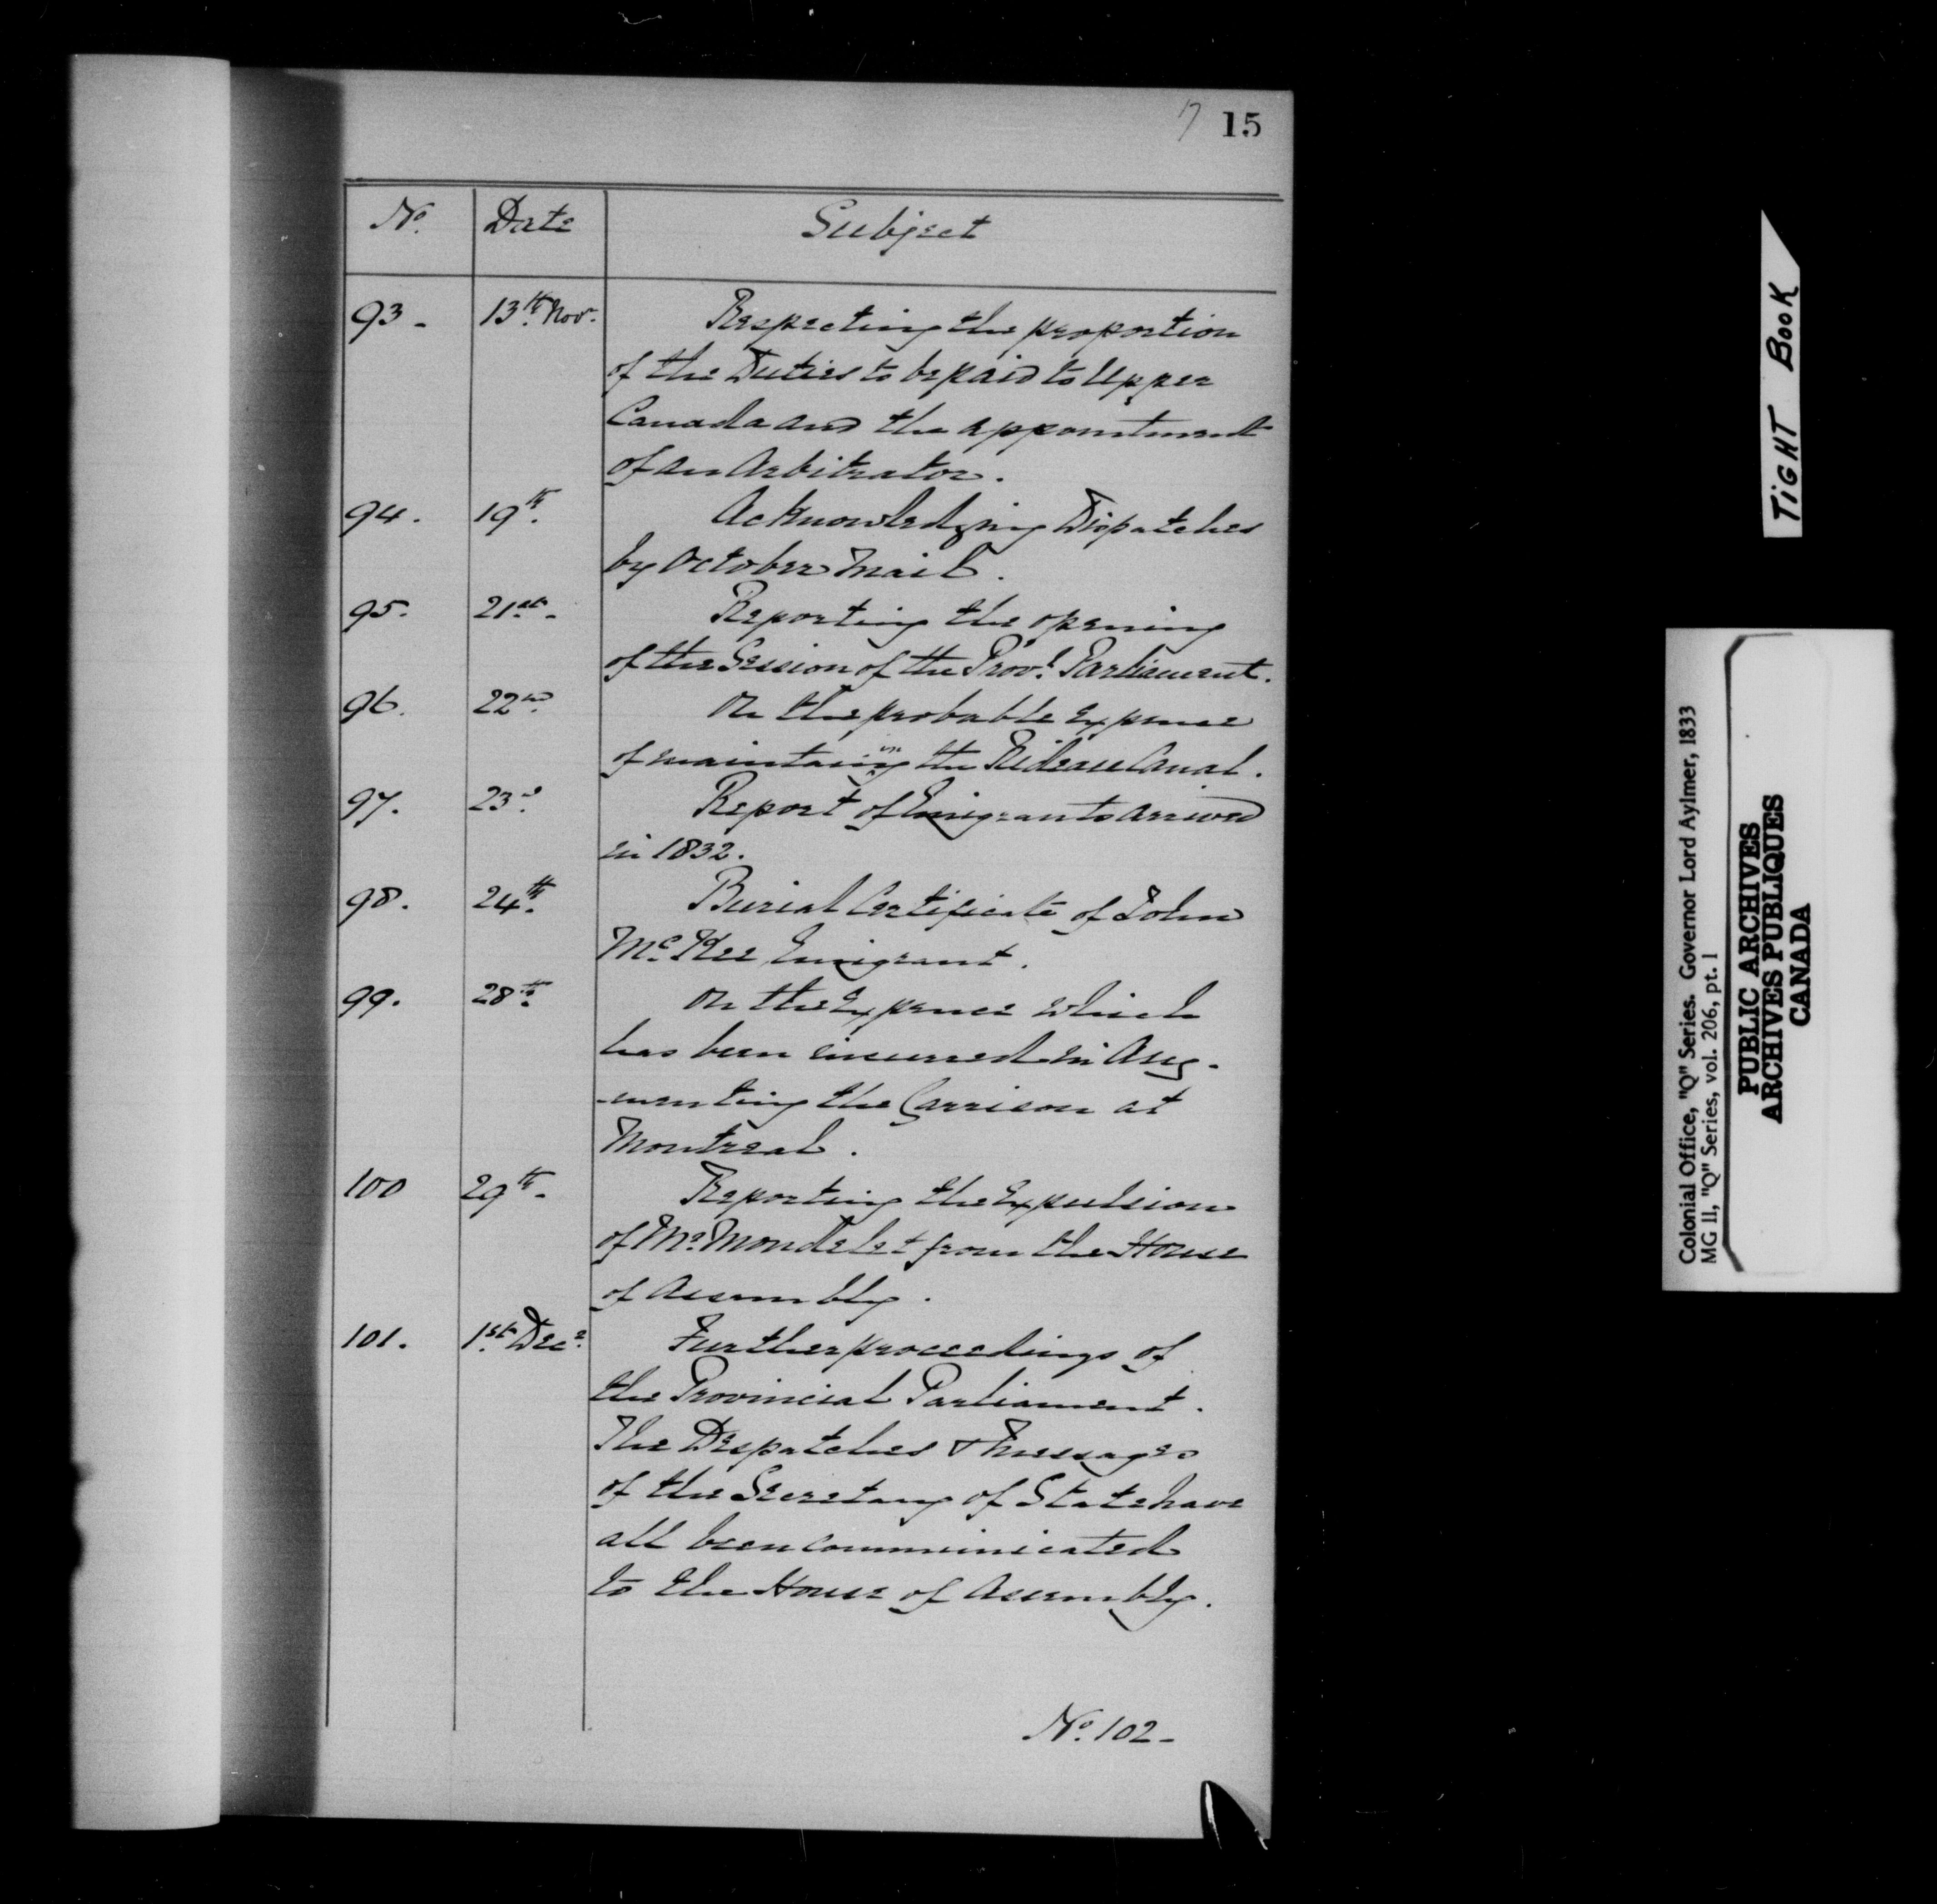 17 15
No. Date Subject
93 - 13th Novr. Respecting the proportion
of the Duties to be paid to Upper
Canada and the appointment
of an Arbitrator.
94. 19th. Acknowledging Dispatches
by October Mail.
95. 21st. Reporting the opening
of the Session of the Provl. Parliament.
96. 22nd. On the probable Expence
of maintaining the Rideau Canal.
97. 23d. Report of Emigrants arrived
in 1832.
98. 24th. Burial Certificate of John
McKee, Emigrant.
99. 28th. On the Expence which
has been incurred in Aug-
-menting the Garrison at
Montreal.
100 29th. Reporting the Expulsion
of Mr. Mondelet from the House
of Assembly.
101. 1st. Decr. Further proceedings of
the Provincial Parliament.
The Despatches & Messages
of the Secretary of State have
all been communicated
to the House of Assembly.
No. 102 -
TIGHT BOOK
Colonial Office, "Q" Series. Governor Lord Aylmer, 1833
MG 11, "Q" Series, vol. 206, pt. 1
PUBLIC ARCHIVES
ARCHIVES PUBLIQUES
CANADA